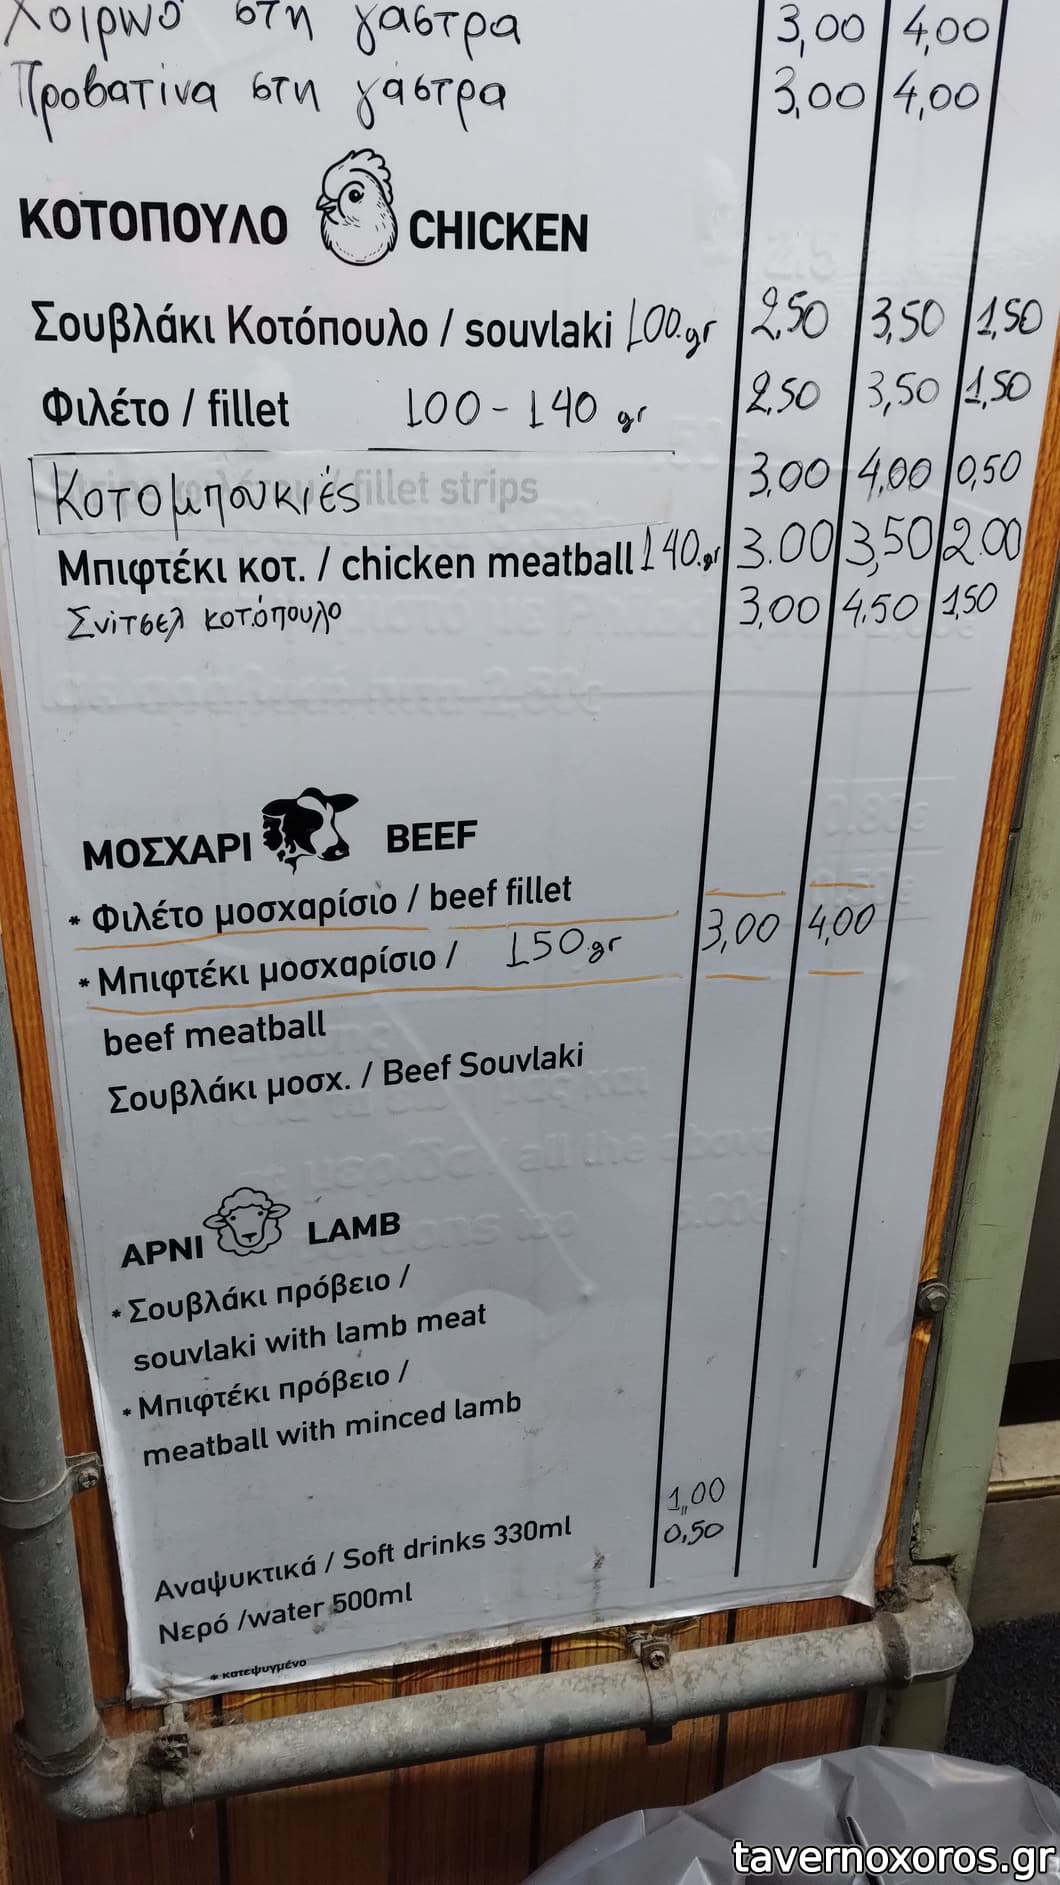 Χοιρινό στη γάστρα 3,00 4,00
Προβατίνα στη γάστρα 3,00 4,00
ΚΟΤΟΠΟΥΛΟ CHICKEN
Σουβλάκι Κοτόπουλο / souvlaki 100.gr 2,50 3,50 1,50
Φιλέτο / fillet 100-140 gr 2,50 3,50 1,50
Κοτομπουκιές fillet strips 3,00 4,00 0,50
Μπιφτέκι κοτ. / chicken meatball 140.gr 3.00 3,50 2.00
Σνίτσελ κοτόπουλο 3,00 4,50 1,50
ΜΟΣΧΑΡΙ BEEF
* Φιλέτο μοσχαρίσιο / beef fillet
* Μπιφτέκι μοσχαρίσιο / 150.gr 3,00 4,00
beef meatball
Σουβλάκι μοσχ. / Beef Souvlaki
ΑΡΝΙ LAMB
* Σουβλάκι πρόβειο /
souvlaki with lamb meat
* Μπιφτέκι πρόβειο /
meatball with minced lamb
Αναψυκτικά / Soft drinks 330ml 1,00
Νερό /water 500ml 0,50
* κατεψυγμένο
tavernoxoros.gr